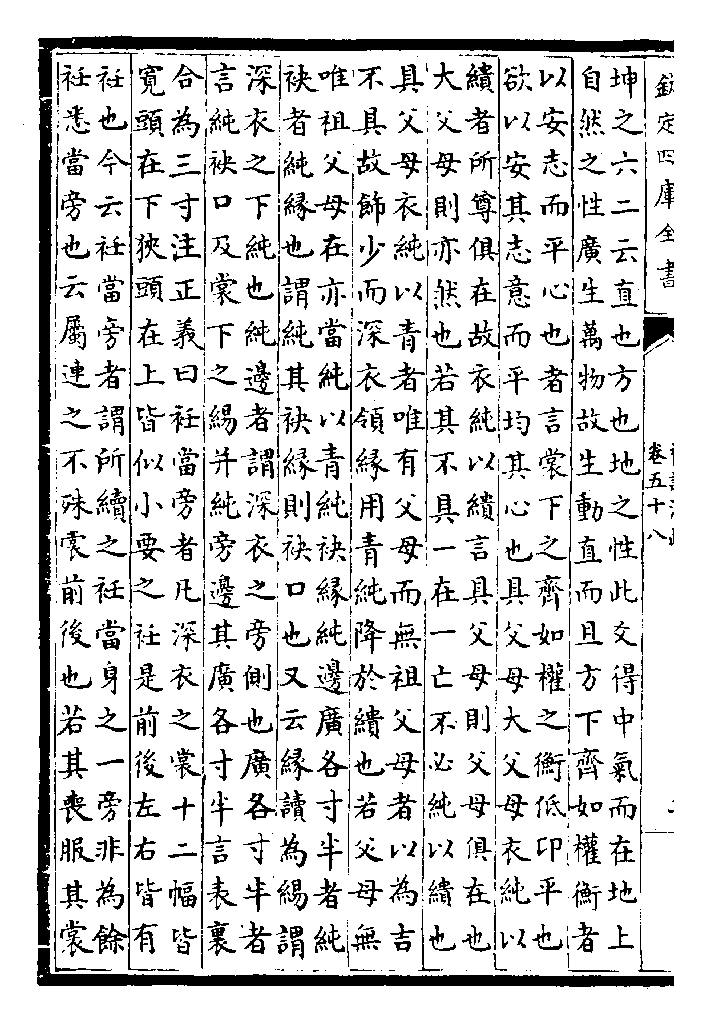 欽定四庫全書
卷五十八
坤之六二云直也方也地之性此爻得中氣而在地上
自然之性廣生萬物故生動直而且方下齊如權衡者
以安志而平心也者言裳下之齊如權之衡低卬平也
欲以安其志意而平均其心也具父母大父母衣純以
繢者所尊俱在故衣純以繢言具父母則父母俱在也
大父母則亦然也若其不具一在一亡不必純以繢也
具父母衣純以青者唯有父母而無祖父母者以為吉
不具故飾少而深衣領緣用青純降於繢也若父母無
唯祖父母在亦當純以青純袂緣純邊廣各寸半者純
袂者純緣也謂純其袂緣則袂口也又云緣讀為緆謂
深衣之下純也純邊者謂深衣之旁側也廣各寸半者
言純袂口及裳下之緆并純旁邊其廣各寸半言表裏
合為三寸注正義曰衽當旁者凡深衣之裳十二幅皆
寬頭在下狹頭在上皆似小要之衽是前後左右皆有
衽也今云衽當旁者謂所續之衽當身之一旁非為餘
衽悉當旁也云屬連之不殊裳前後也若其喪服其裳